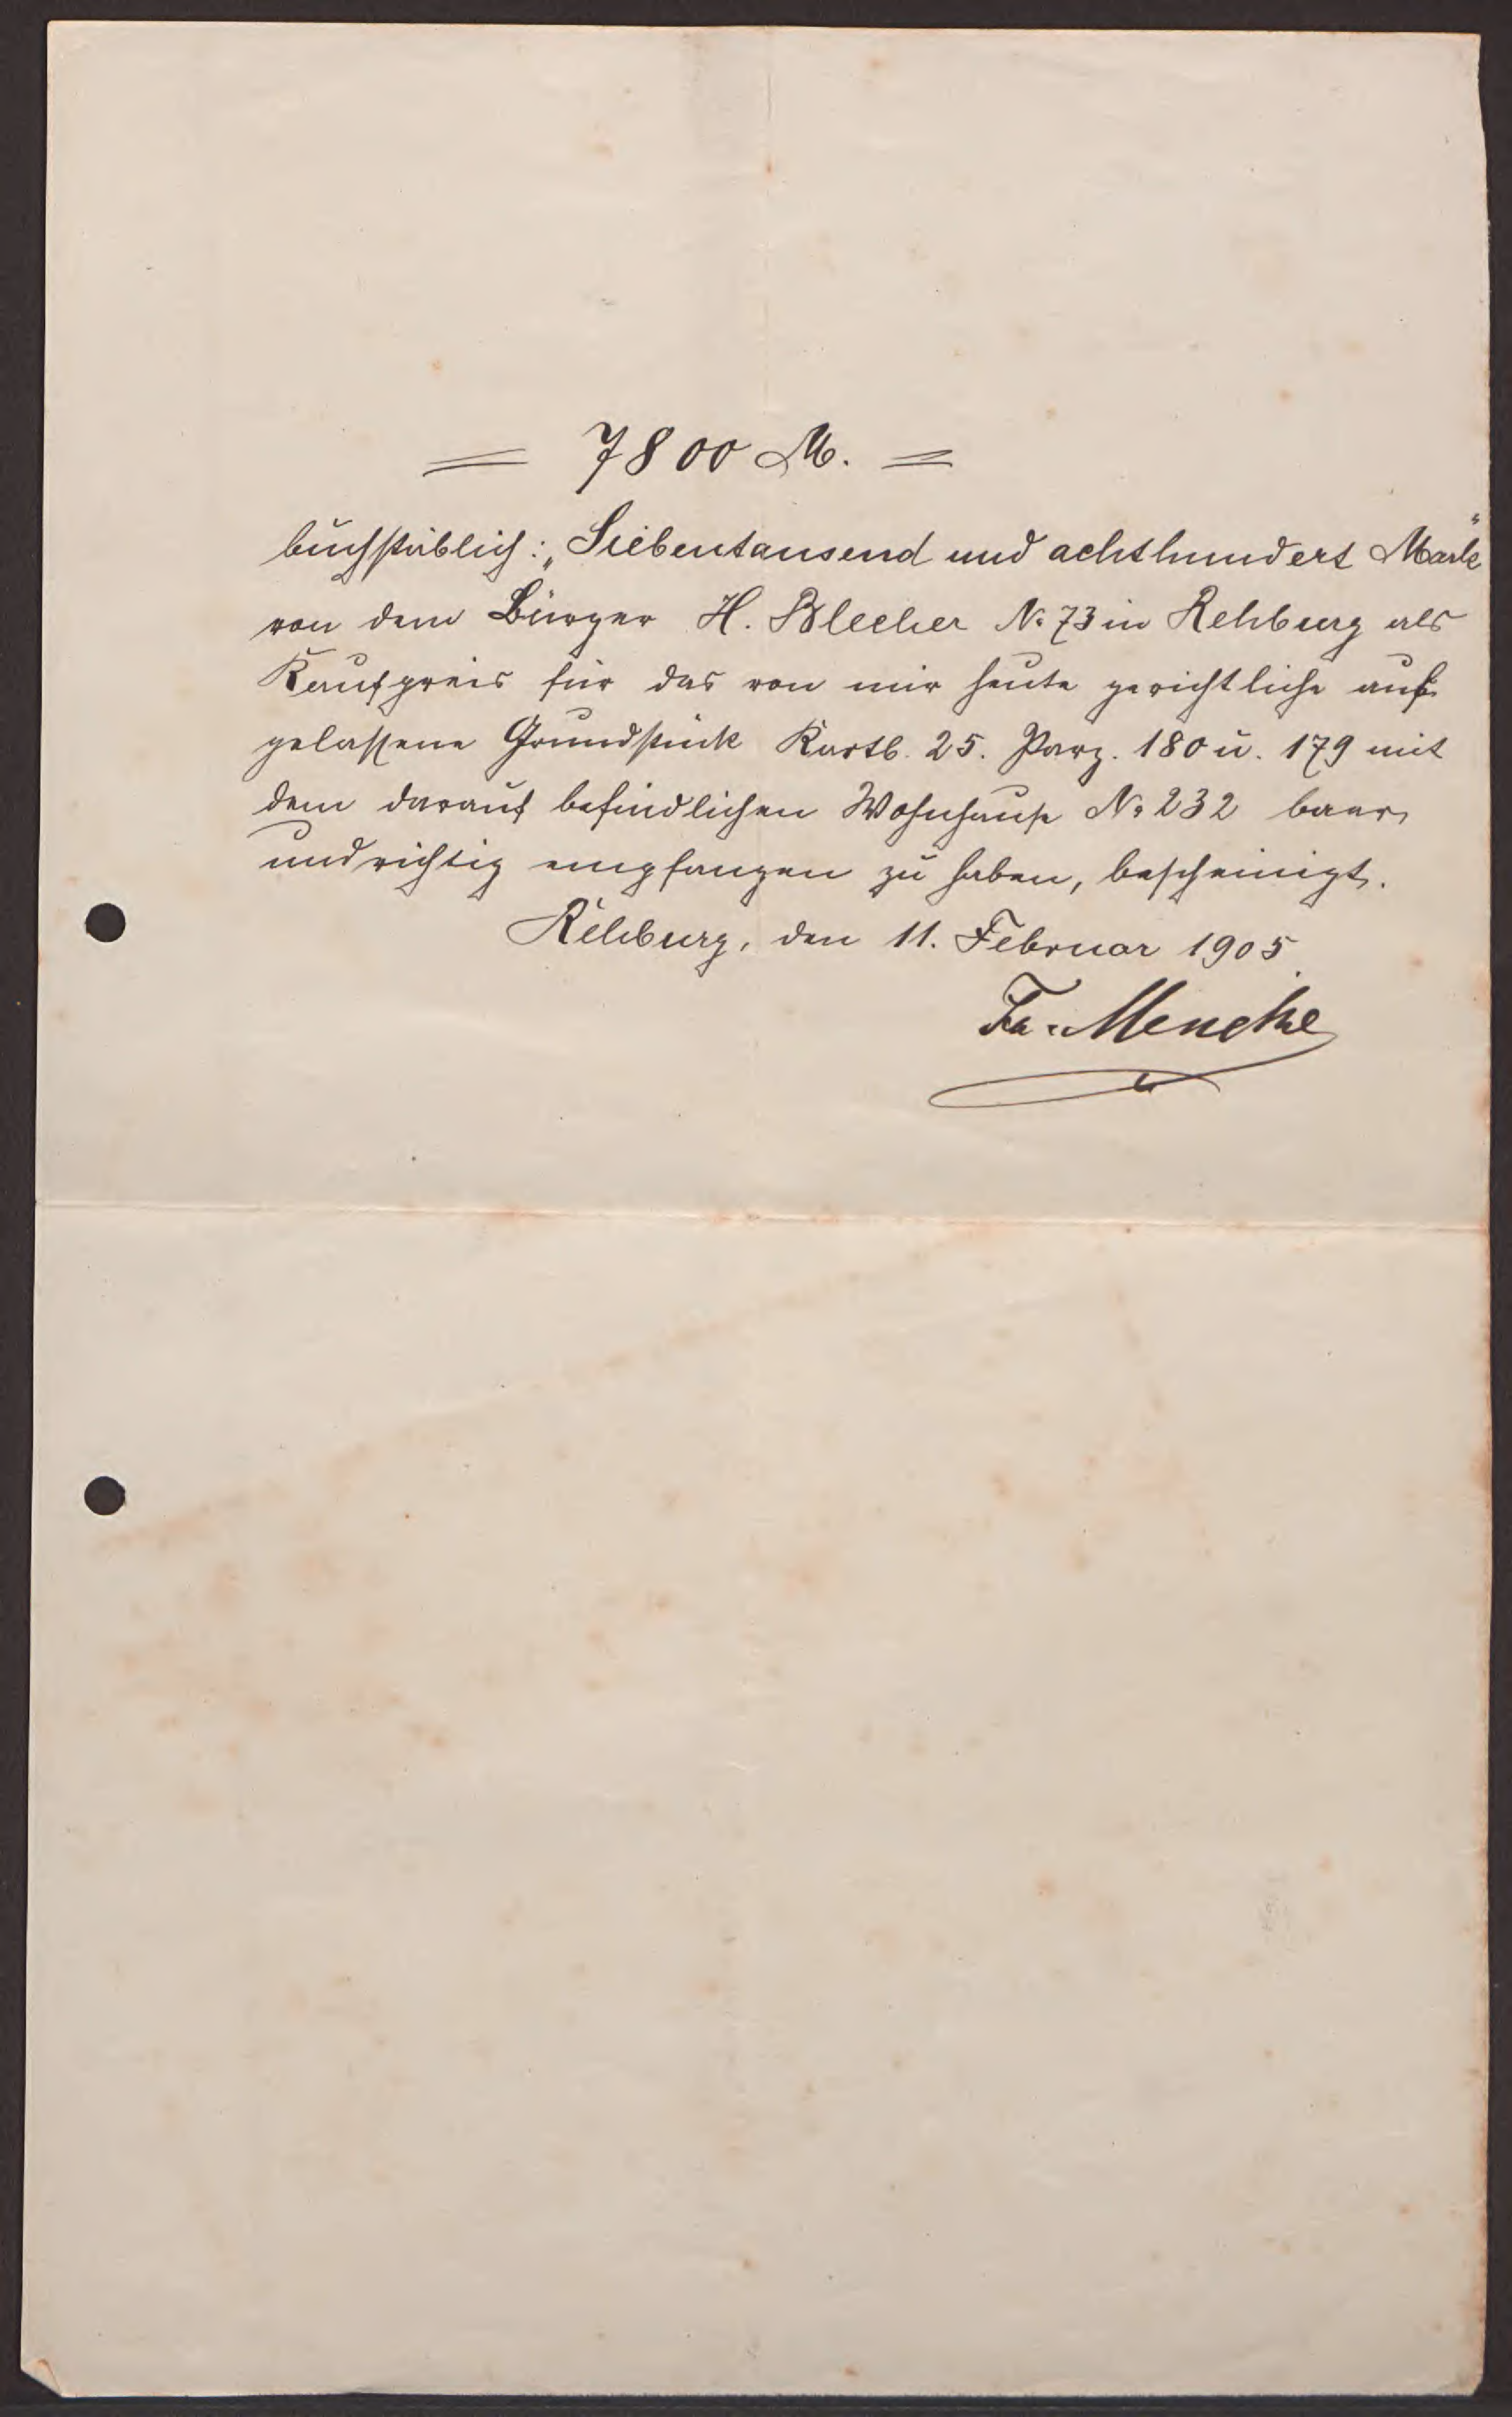 = 7800 M. =
buchstäblich: „Siebentausend und achthundert Mark"
von dem Bürger H. Blecher No 73 in Rehburg als
Kaufpreis für das von mir heute gerichtliche auf-
gelassene Grundstück Kartb. 25. Parz. 180 u. 179 mit
dem darauf befindlichen Wohnhause No 232 baar
und richtig empfangen zu haben, bescheinigt.
Rehburg, den 11. Februar 1905.
Fr. Menche